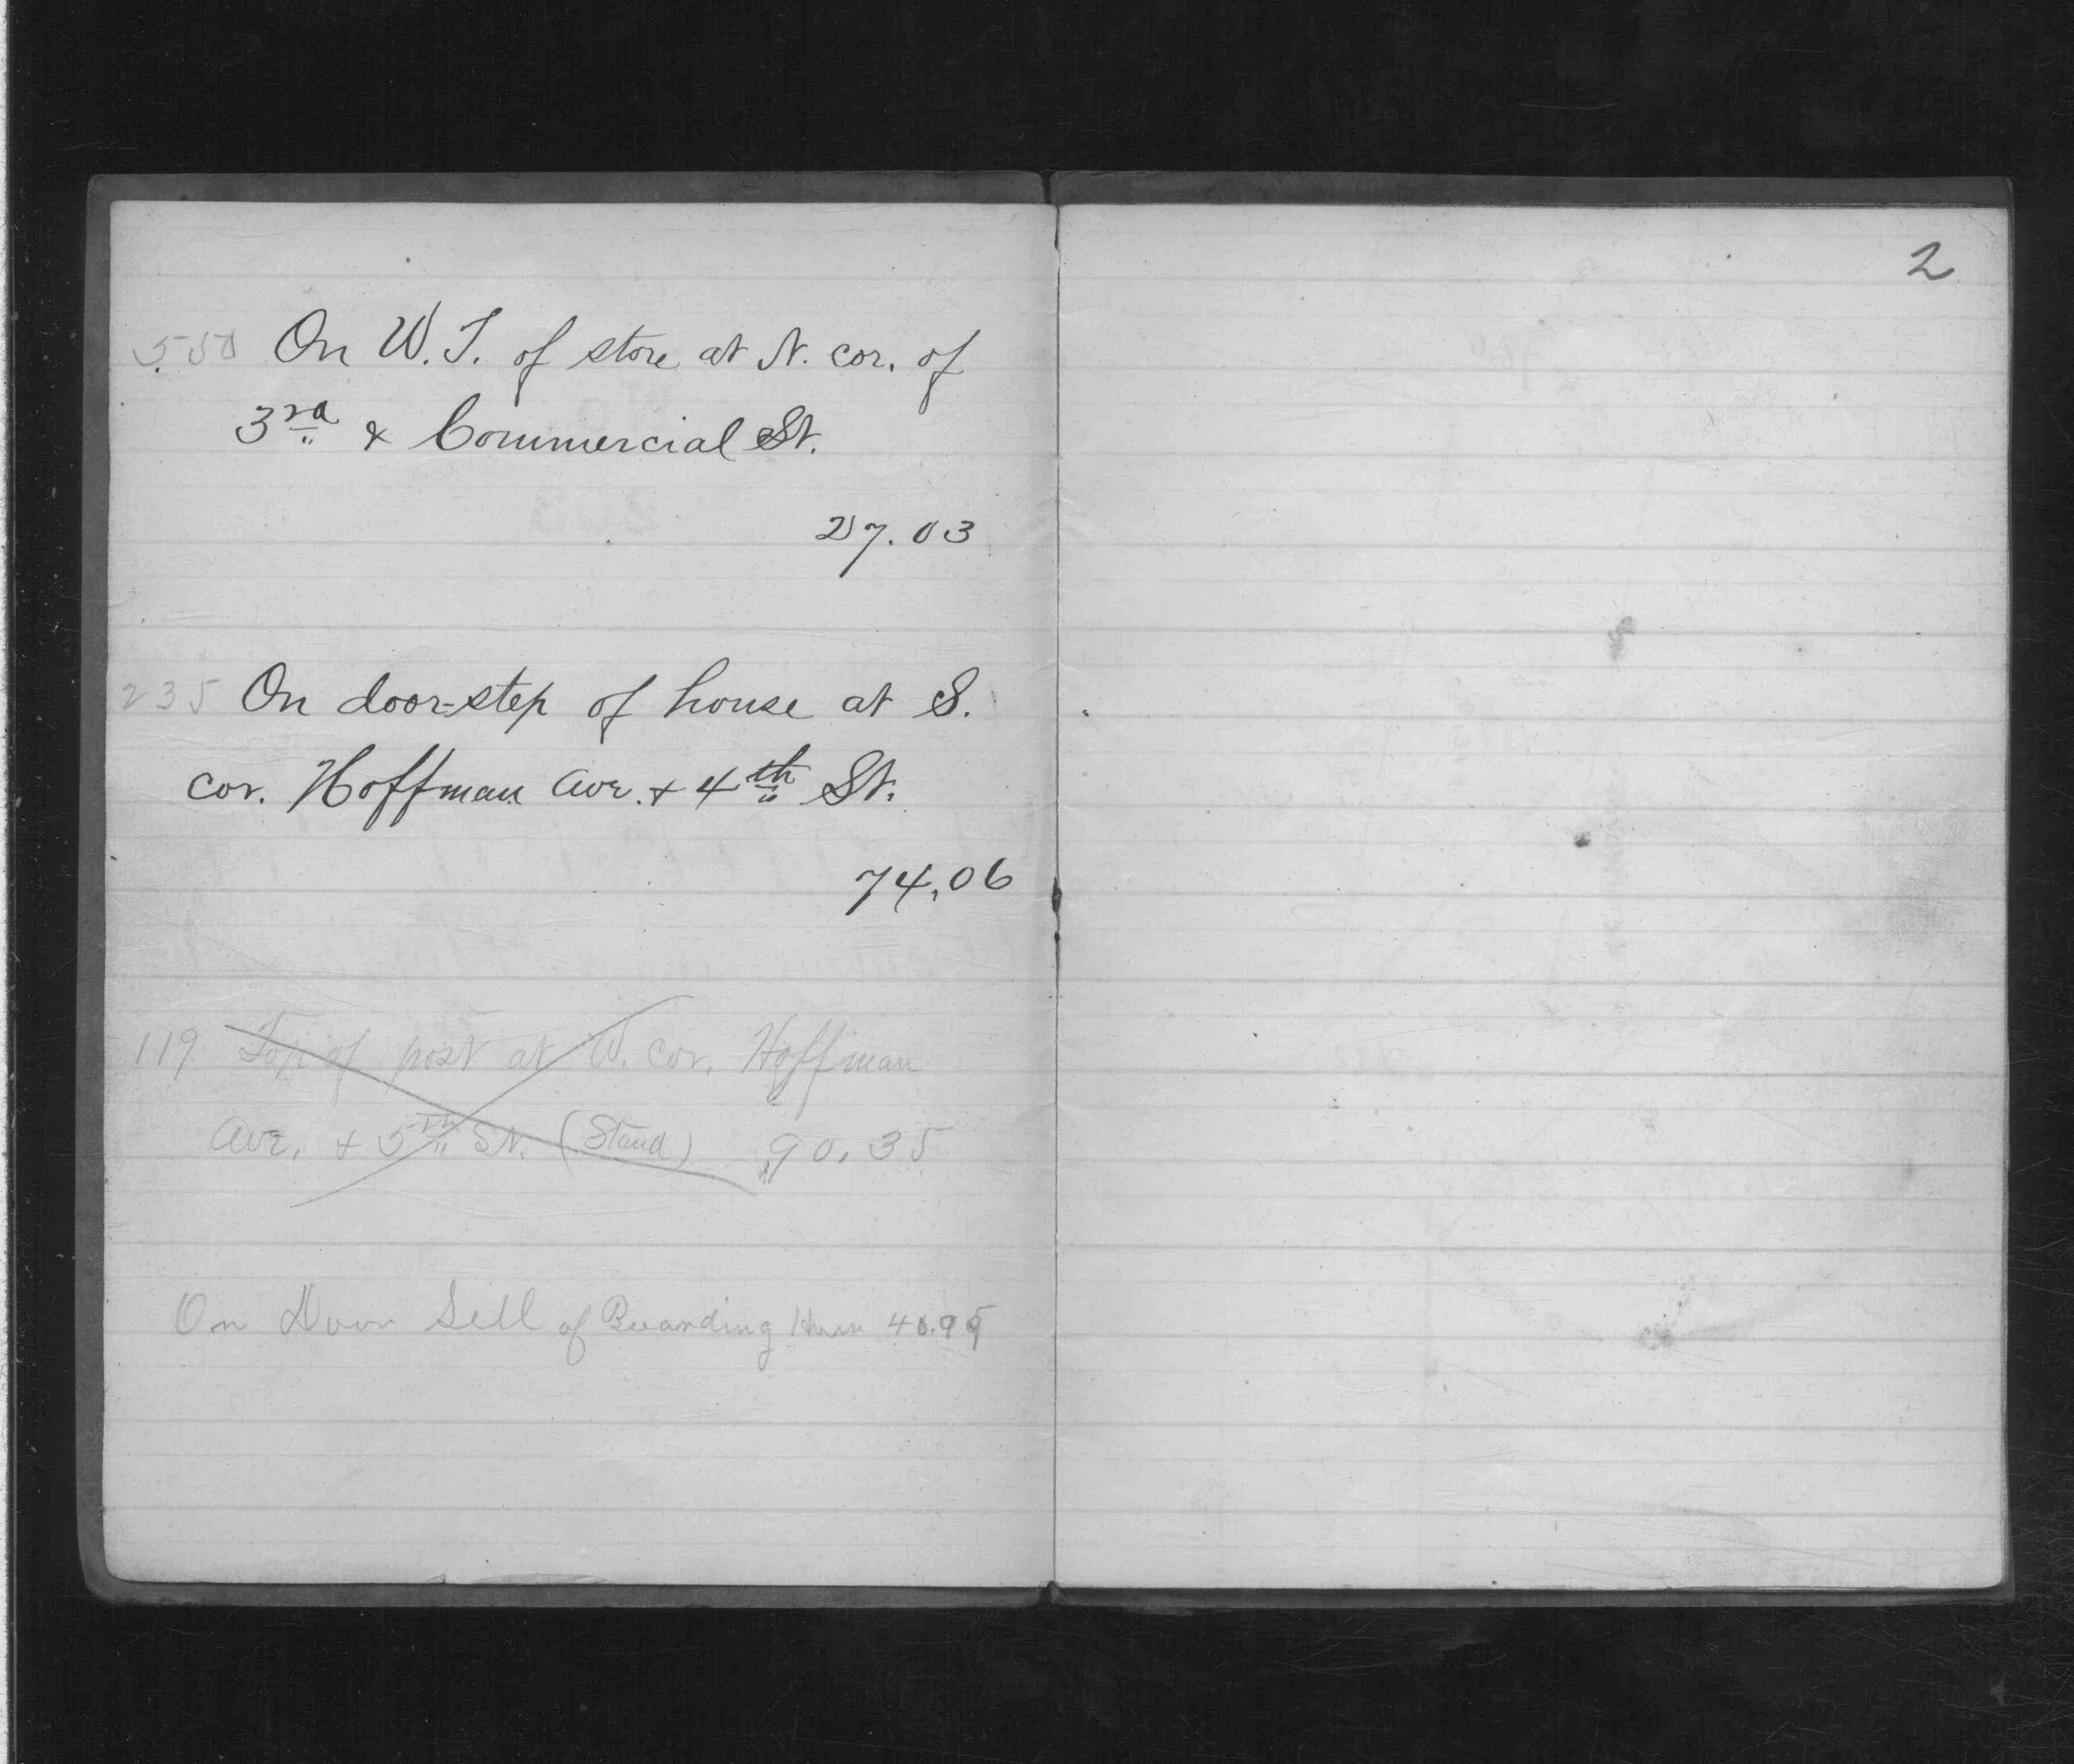 550 On W. T. of store at N. cor. of
3rd & Commercial St.
27.03
235 On door-step of house at S.
cor. Hoffman Ave. + 4th St.
74.06
119 Top of post at W. cor. Hoffman
Ave. + 5th St. (Stand) 90.35
On Door Sill of Boarding
2